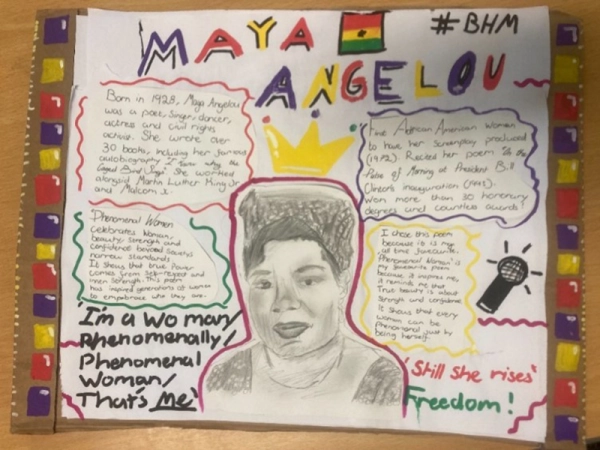 MAYA
#BHM
ANGELOU
Born in 1928, Maya Angelou
was a poet, singer, dancer,
actress and civil rights
activist. She wrote over
30 books, including her famous
autobiography "I know why the
Caged Bird Sings". She worked
alongside Martin Luther King Jr
and Malcom X.
First African American Woman
to have her Screenplay produced
(1972). Recited her poem "On the
Pulse of Morning at President Bill
Clinton's inauguration
Won more than 30 honorary
degrees and countless awards!
Phenomenal Women
Celebrates Woman,
beauty, strength and
confidence beyond Society's
narrow standards.
It shows that true Power
comes from self-respect and
inner strength. This poem
has inspired generations of women
to embrace who they are.
I chose this poem
because it is my
all time favourite.
Phenomenal Woman is
my favourite poem
because it inspires me,
it reminds me that
True beauty is about
Strength and confidence
It shows that every
woman can be
phenomenal just by
being herself.
'I'm a Woman/
Phenomenally/
Phenomenal
Woman/
That's Me'
'Still She rises'
Freedom!